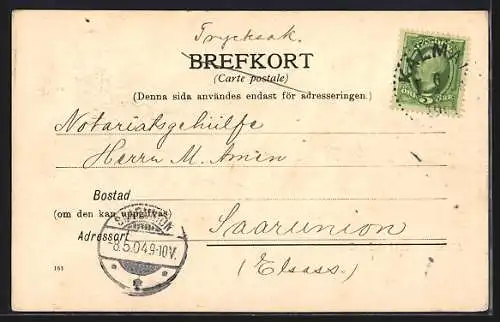 Trycksak.
BREFKORT
(Carte postale)
(Denna sida användes endast för adresseringen.)
KALMAR
6
5 ÖRE
Notariatsgehülfe
Herrn M. Amen
Bostad
(om den kan uppgifvas)
Adressort
Saarunion
(Elsass.)
SAARUNION
8.5.04.9-10V.
151